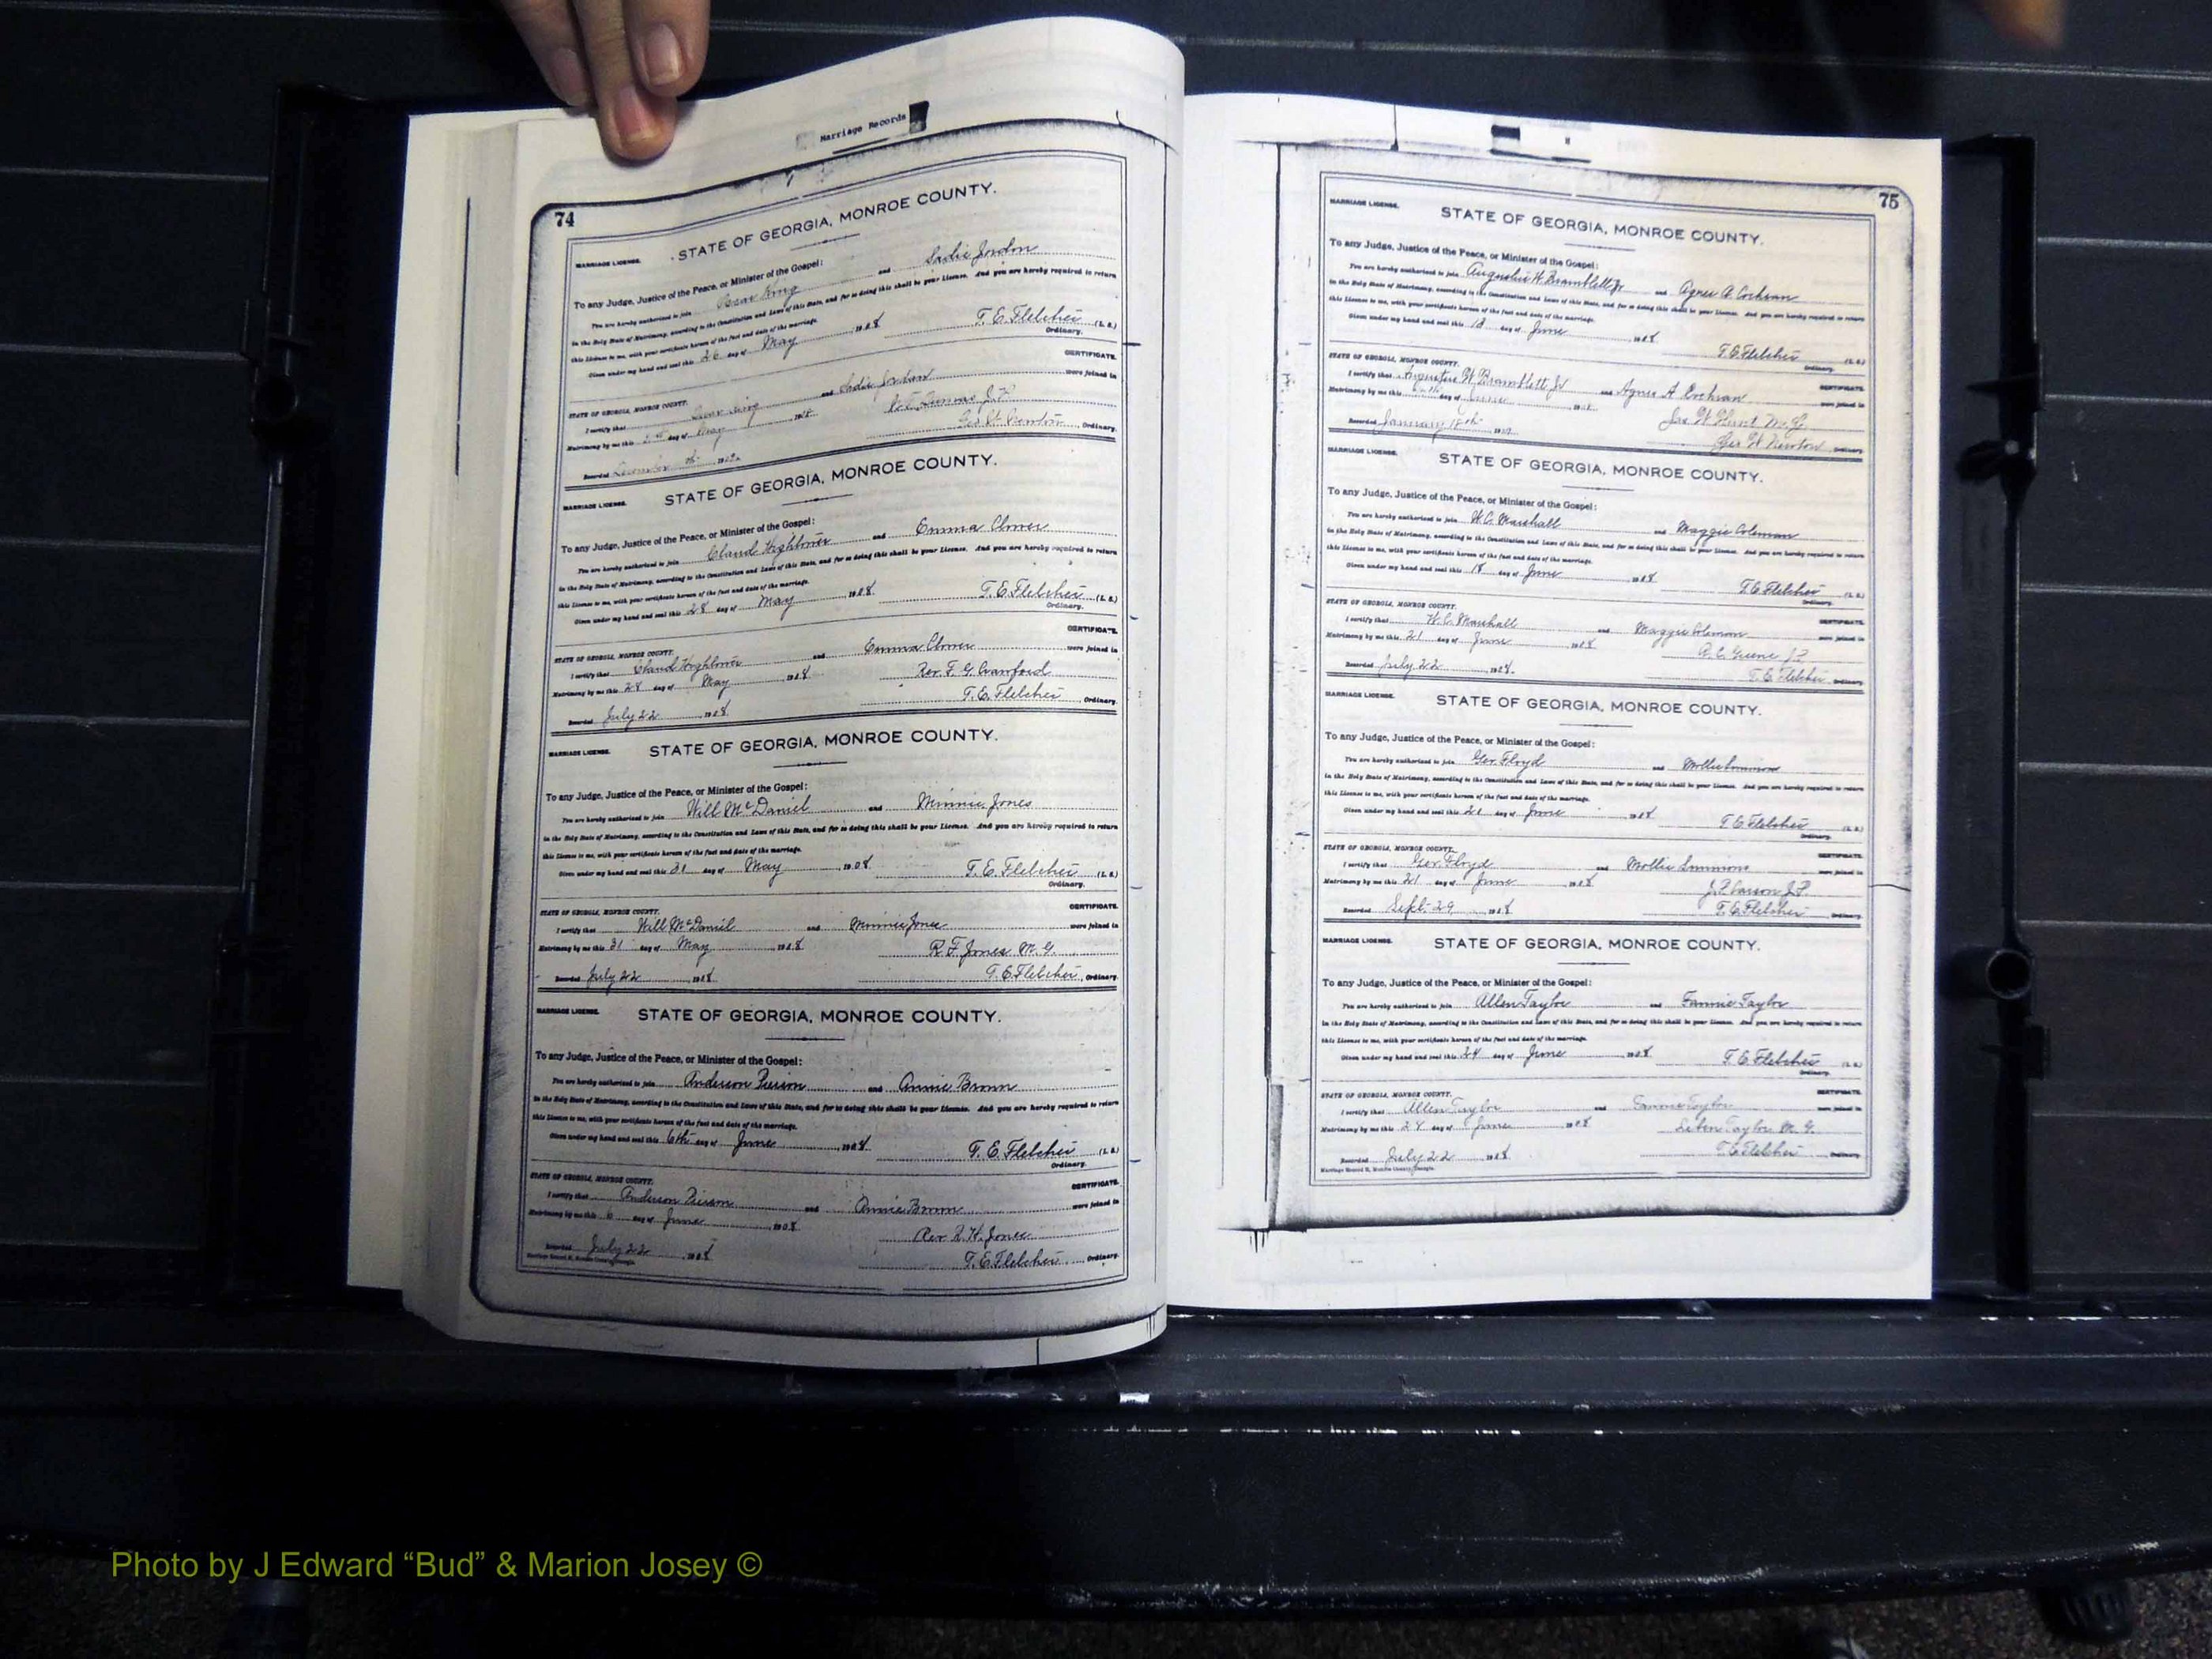 Marriage Records
74
STATE OF GEORGIA, MONROE COUNTY.
MARRIAGE LICENSE.
To any Judge, Justice of the Peace, or Minister of the Gospel:
You are hereby authorized to join Oscar King and Sadie Jordon
in the Holy State of Matrimony, according to the Constitution and Laws of this State, and for so doing this shall be your License. And you are hereby required to return
this License to me, with your certificate hereon of the fact and date of the marriage.
Given under my hand and seal this 26 day of May 1908
T. E. Fletcher (L. S.)
Ordinary.
CERTIFICATE.
STATE OF GEORGIA, MONROE COUNTY.
I certify that Oscar King and Sadie Jordan were joined in
Matrimony by me this day of May
Recorded Ordinary.
MARRIAGE LICENSE.
STATE OF GEORGIA, MONROE COUNTY.
To any Judge, Justice of the Peace, or Minister of the Gospel:
You are hereby authorized to join Claud Hightower and Emma Clower
in the Holy State of Matrimony, according to the Constitution and Laws of this State, and for so doing this shall be your License. And you are hereby required to return
this License to me, with your certificate hereon of the fact and date of the marriage.
Given under my hand and seal this 28 day of May 1908
T. E. Fletcher (L. S.)
Ordinary.
CERTIFICATE.
STATE OF GEORGIA, MONROE COUNTY.
I certify that Claud Hightower and Emma Clower were joined in
Matrimony by me this 28 day of May 1908 Rev. F. G. Crawford
Recorded July 22 1908 T. E. Fletcher, Ordinary.
MARRIAGE LICENSE.
STATE OF GEORGIA, MONROE COUNTY.
To any Judge, Justice of the Peace, or Minister of the Gospel:
You are hereby authorized to join Will McDaniel and Minnie Jones
in the Holy State of Matrimony, according to the Constitution and Laws of this State, and for so doing this shall be your License. And you are hereby required to return
this License to me, with your certificate hereon of the fact and date of the marriage.
Given under my hand and seal this 31 day of May 1908
T. E. Fletcher (L. S.)
Ordinary.
CERTIFICATE.
STATE OF GEORGIA, MONROE COUNTY.
I certify that Will McDaniel and Minnie Jones were joined in
Matrimony by me this 31 day of May 1908 R. F. Jones M. G.
Recorded July 22 1908 T. E. Fletcher, Ordinary.
MARRIAGE LICENSE.
STATE OF GEORGIA, MONROE COUNTY.
To any Judge, Justice of the Peace, or Minister of the Gospel:
You are hereby authorized to join Anderson Pierson and Annie Brown
in the Holy State of Matrimony, according to the Constitution and Laws of this State, and for so doing this shall be your License. And you are hereby required to return
this License to me, with your certificate hereon of the fact and date of the marriage.
Given under my hand and seal this 6th day of June 1908
T. E. Fletcher (L. S.)
Ordinary.
CERTIFICATE.
STATE OF GEORGIA, MONROE COUNTY.
I certify that Anderson Pierson and Annie Brown were joined in
Matrimony by me this 6 day of June 1908 Rev R. H. Jones
Recorded July 22 1908 T. E. Fletcher, Ordinary.
75
MARRIAGE LICENSE.
STATE OF GEORGIA, MONROE COUNTY.
To any Judge, Justice of the Peace, or Minister of the Gospel:
You are hereby authorized to join Augustus W. Bramblett Jr and Agnes A. Cochran
in the Holy State of Matrimony, according to the Constitution and Laws of this State, and for so doing this shall be your License. And you are hereby required to return
this License to me, with your certificate hereon of the fact and date of the marriage.
Given under my hand and seal this day of June 1908
T. E. Fletcher (L. S.)
Ordinary.
CERTIFICATE.
STATE OF GEORGIA, MONROE COUNTY.
I certify that Augustus W Bramblett Jr and Agnes A Cochran were joined in
Matrimony by me this day of June Jas W Hunt M. G.
Recorded January 18th Geo W Newton Ordinary.
MARRIAGE LICENSE.
STATE OF GEORGIA, MONROE COUNTY.
To any Judge, Justice of the Peace, or Minister of the Gospel:
You are hereby authorized to join W. C. Marshall and Maggie Coleman
in the Holy State of Matrimony, according to the Constitution and Laws of this State, and for so doing this shall be your License. And you are hereby required to return
this License to me, with your certificate hereon of the fact and date of the marriage.
Given under my hand and seal this 18 day of June 1908
T. E. Fletcher (L. S.)
Ordinary.
CERTIFICATE.
STATE OF GEORGIA, MONROE COUNTY.
I certify that W. C. Marshall and Maggie Coleman were joined in
Matrimony by me this 21 day of June 1908 A. C. Greene J. P.
Recorded July 22 1908. T. E. Fletcher Ordinary.
MARRIAGE LICENSE.
STATE OF GEORGIA, MONROE COUNTY.
To any Judge, Justice of the Peace, or Minister of the Gospel:
You are hereby authorized to join Geo. Floyd and Mollie Simmons
in the Holy State of Matrimony, according to the Constitution and Laws of this State, and for so doing this shall be your License. And you are hereby required to return
this License to me, with your certificate hereon of the fact and date of the marriage.
Given under my hand and seal this 21 day of June 1908
T. E. Fletcher (L. S.)
Ordinary.
CERTIFICATE.
STATE OF GEORGIA, MONROE COUNTY.
I certify that Geo. Floyd and Mollie Simmons were joined in
Matrimony by me this 21 day of June 1908 J. P. Carson J. P.
Recorded Sept. 29 1908 T. E. Fletcher Ordinary.
MARRIAGE LICENSE.
STATE OF GEORGIA, MONROE COUNTY.
To any Judge, Justice of the Peace, or Minister of the Gospel:
You are hereby authorized to join Allen Taylor and Fannie Taylor
in the Holy State of Matrimony, according to the Constitution and Laws of this State, and for so doing this shall be your License. And you are hereby required to return
this License to me, with your certificate hereon of the fact and date of the marriage.
Given under my hand and seal this 24 day of June 1908
T. E. Fletcher (L. S.)
Ordinary.
CERTIFICATE.
STATE OF GEORGIA, MONROE COUNTY.
I certify that Allen Taylor and Fannie Taylor were joined in
Matrimony by me this 24 day of June 1908 Taylor M. G.
Recorded July 22 1908 T. E. Fletcher Ordinary.
Photo by J Edward “Bud” & Marion Josey ©